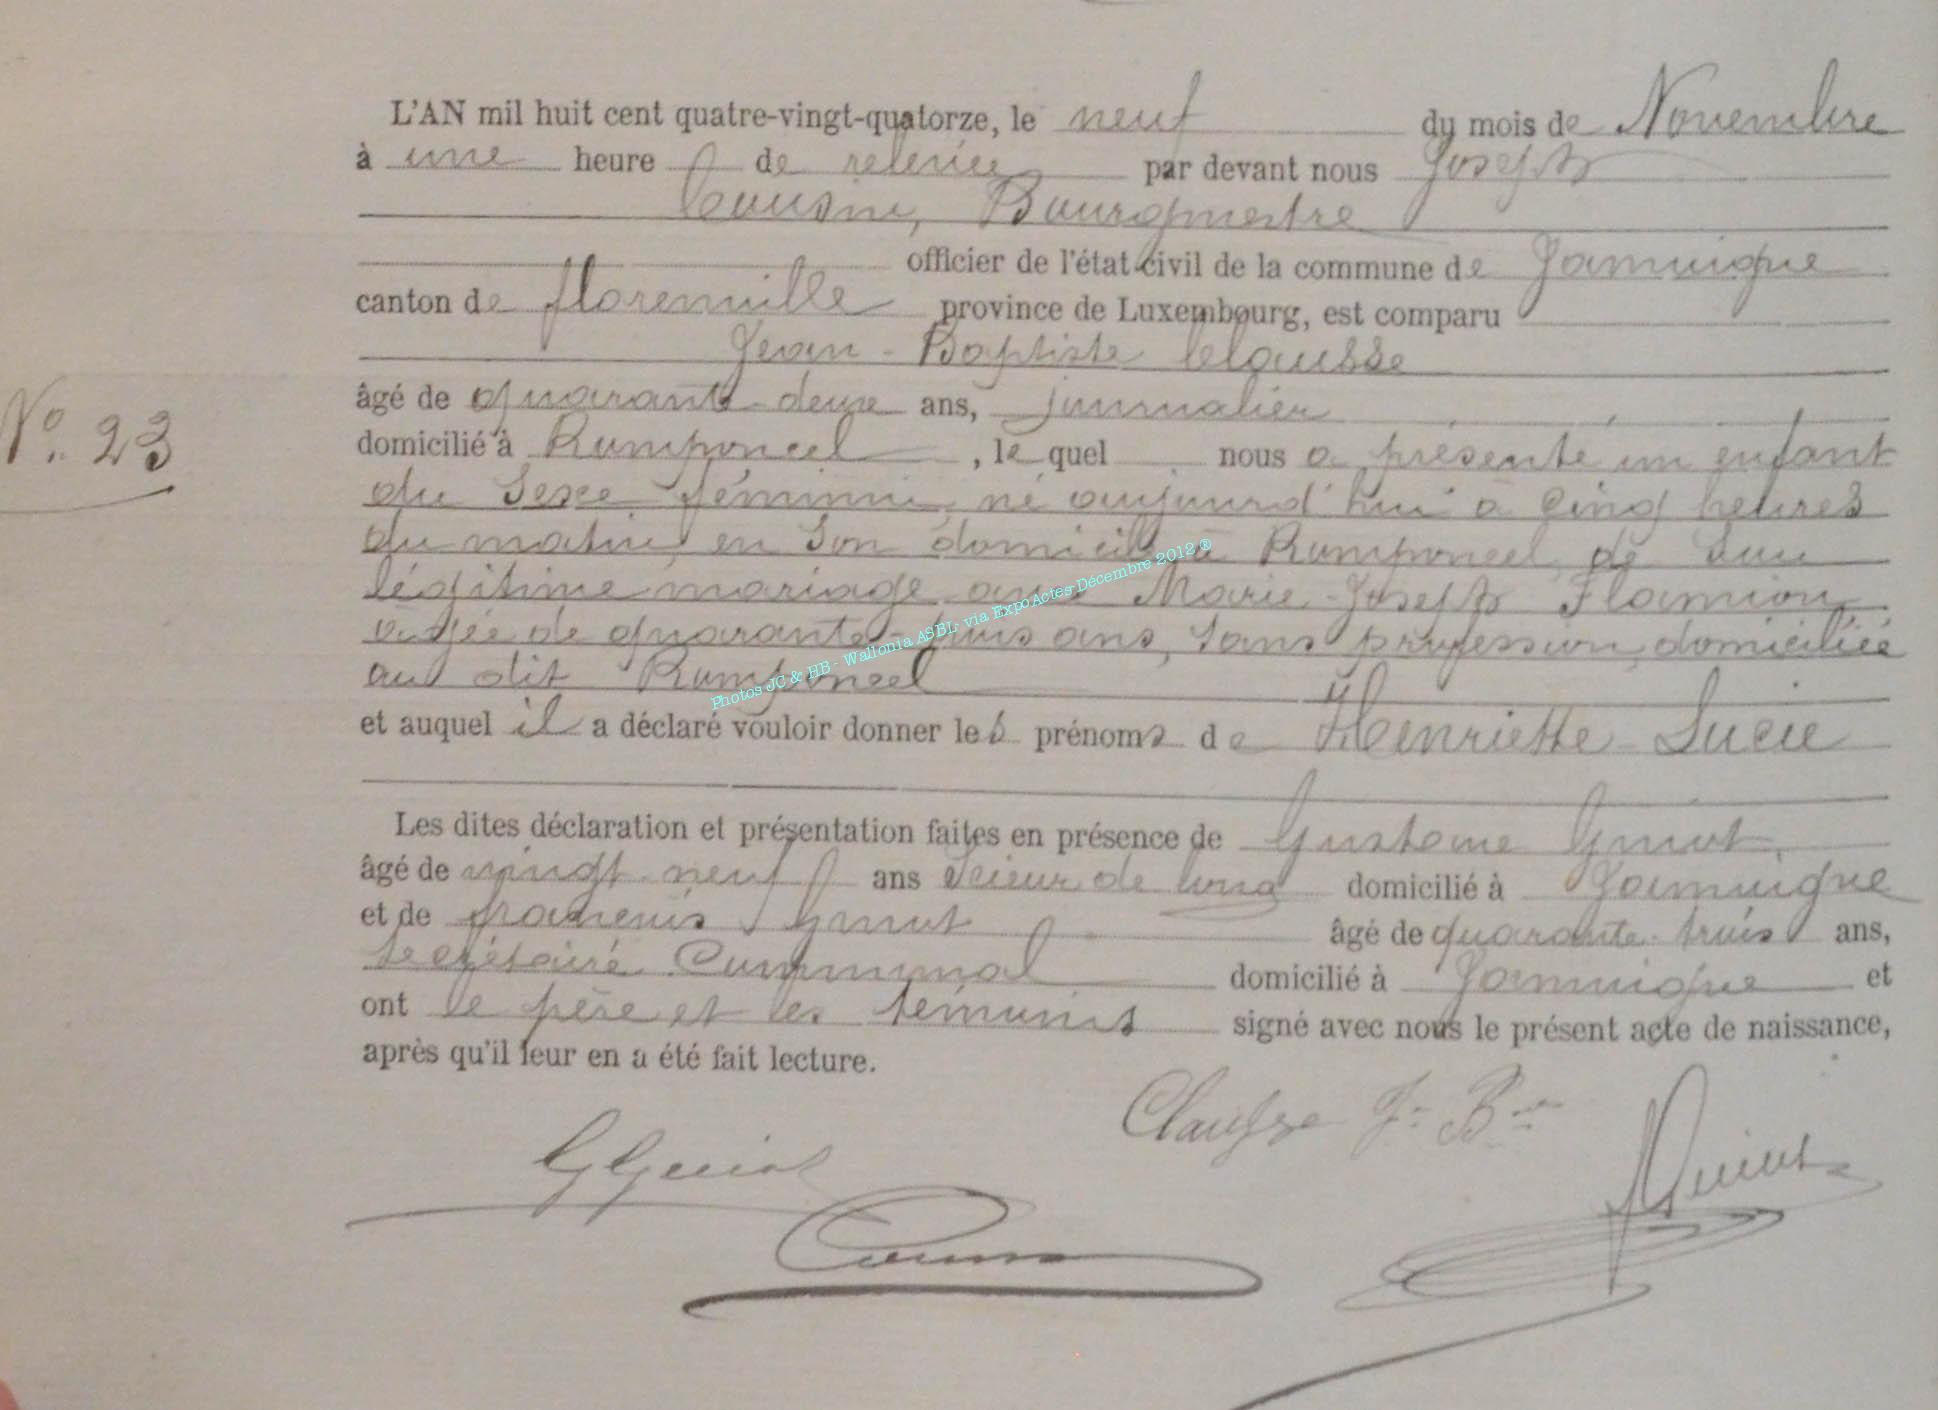 L'AN mil huit cent quatre-vingt-quatorze, le neuf du mois de Novembre
à une heure de relevée par devant nous Joseph
Cousin, Bourgmestre
officier de l'état civil de la commune de Jamoigne
canton de florenville province de Luxembourg, est comparu
Jean-Baptiste Clausse
âgé de quarante-deux ans, journalier
domicilié à Romponcel, le quel nous a présenté un enfant
N° 23
du Sexe féminin, né aujourd'hui à Cinq heures
du matin, en Son domicile à Romponcel, de Son
légitime mariage avec Marie-Joseph Flamion
âgée de quarante ans, Sans profession, domiciliée
au dit Romponcel
et auquel il a déclaré vouloir donner les prénoms de Henriette-Lucie
Les dites déclaration et présentation faites en présence de Gustave Guiot,
âgé de vingt-neuf ans Scieur de long domicilié à Jamoigne
et de francois Guiot âgé de quarante-trois ans,
Secrétaire Communal domicilié à Jamoigne et
ont le père et les témoins signé avec nous le présent acte de naissance,
après qu'il leur en a été fait lecture.
Clausse J-Bte
GGuiot
Guiot
Cousin
Photos JC & HB - Wallonia ASBL via ExpoActes-Décembre 2012 ®